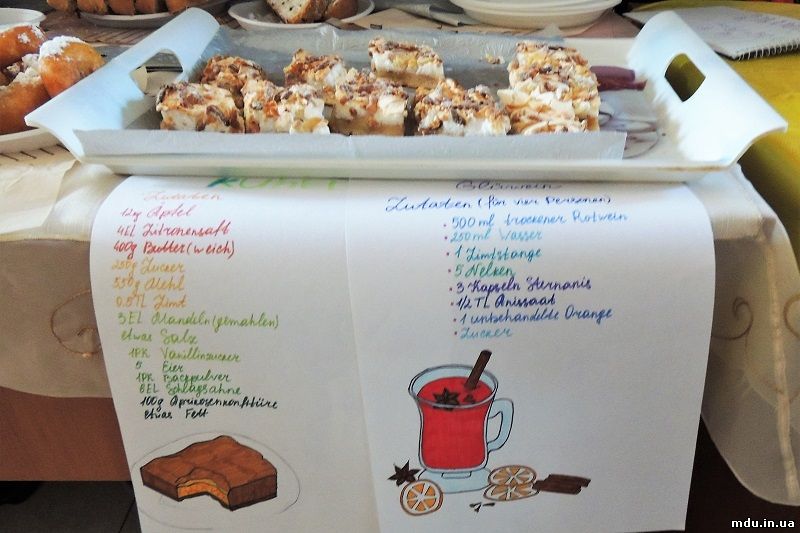 Zutaten
12kg Äpfel
4EL Zitronensaft
400g Butter (weich)
250g Zucker
550g Mehl
0.5 TL Zimt
3 EL Mandeln (gemahlen)
etwas Salz
1PK Vanillinzucker
5 Eier
1PK Backpulver
8EL Schlagsahne
100g Apricosenkonfitüre
etwas Fett
Glürwein
Zutaten (für vier Personen)
• 500 ml trockener Rotwein
• 250ml Wasser
• 1 Zimtstange
• 5 Nelken
• 3 Kapseln Sternanis
• 1/2 TL Anissaat
• 1 unbehandelte Orange
• Zucker
mdu.in.ua